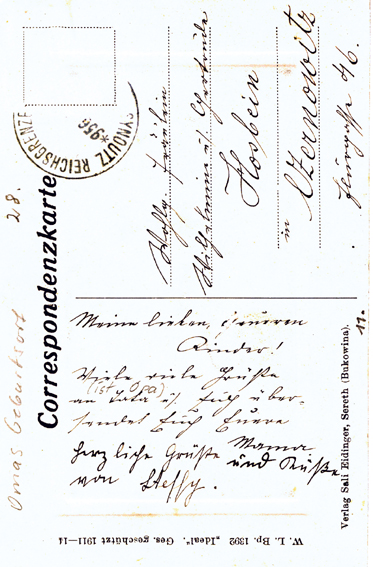 Correspondenzkarte
SYNOUTZ REICHSGRENZE
*956
28.
Omas Geburtsort
Wohlg. Fräulein
Wilhelmine u. Gertrude
Hosbein
in Czernowitz
46.
11.
Meine lieben, teueren
Kinder!
Viele viele Grüße
(ist Opa)
an Tata u. Euch über-
sendet Euch Euere
Mama
herzliche Grüße und Küße
von Steffy.
Verlag Sali Eidinger, Sereth (Bukowina).
W. L. Bp. 1392 „Ideal". Ges. geschützt 1911—14